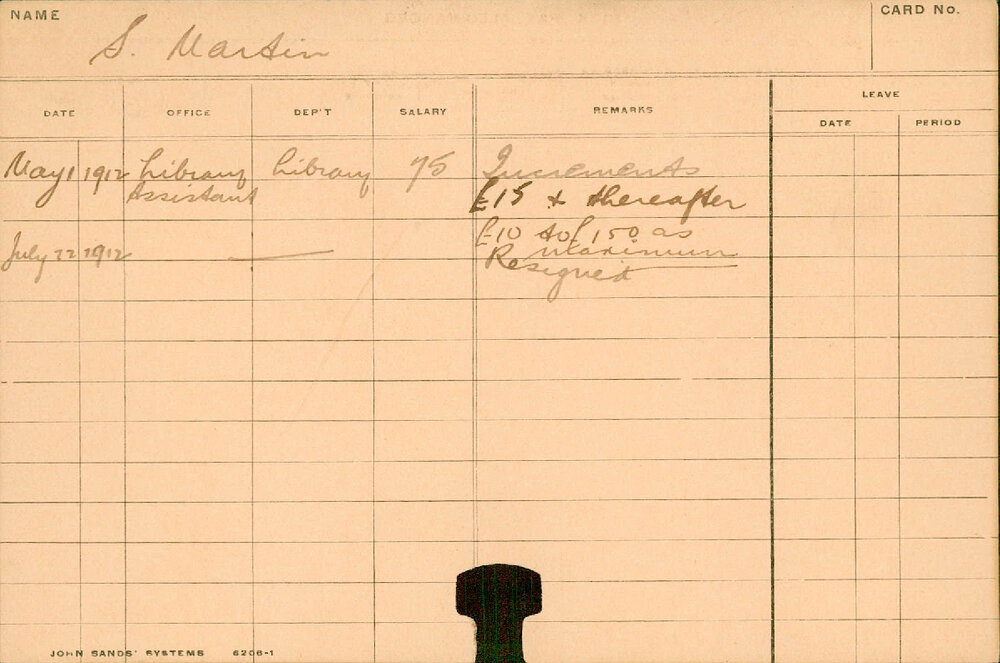 NAME
CARD No.
S. Martin
LEAVE
DATE OFFICE DEP'T SALARY REMARKS DATE PERIOD
May 1 1912 Library Library 75 Increments
Assistant £15 & thereafter
£10 to £150 as
July 22 1912 — maximum
Resigned
JOHN SANDS' SYSTEMS 6206-1